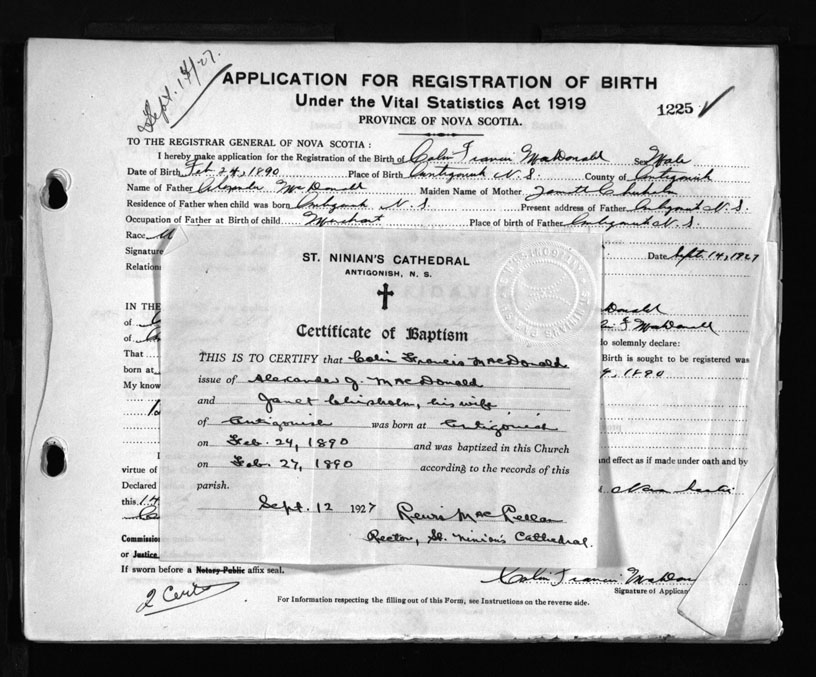 Sept. 14/27.
APPLICATION FOR REGISTRATION OF BIRTH
Under the Vital Statistics Act 1919
1225
PROVINCE OF NOVA SCOTIA.
TO THE REGISTRAR GENERAL OF NOVA SCOTIA:
I hereby make application for the Registration of the Birth of Colin Francis MacDonald Sex Male
Date of Birth Feb. 24, 1890 Place of Birth Antigonish N. S. County of Antigonish
Name of Father Alexander McDonald Maiden Name of Mother Janett Chisholm
Residence of Father when child was born Antigonish N. S. Present address of Father Antigonish N. S.
Occupation of Father at Birth of child Merchant Place of birth of Father Antigonish N. S.
Race
Signature Date Sept. 14, 1927
Relation
ST. NINIAN'S CATHEDRAL
ANTIGONISH, N. S.
Certificate of Baptism
THIS IS TO CERTIFY that Colin Francis MacDonald
issue of Alexander J. MacDonald
and Janet Chisholm, his wife
of Antigonish was born at Antigonish
on Feb. 24, 1890 and was baptized in this Church
on Feb. 27, 1890 according to the records of this
parish.
Sept. 12 1927 Lewis MacLellan
Rector, St. Ninian's Cathedral.
IN THE Donald
of F MacDonald
of do solemnly declare:
That Birth is sought to be registered was
born at 4, 1890
My know
I
virtue of and effect as if made under oath and by
Declared Nova Scotia
this 14
Commissio
or Justice
If sworn before a Notary Public affix seal.
Colin Francis MacDon
Signature of Applican
2 Certs
For Information respecting the filling out of this Form, see Instructions on the reverse side.